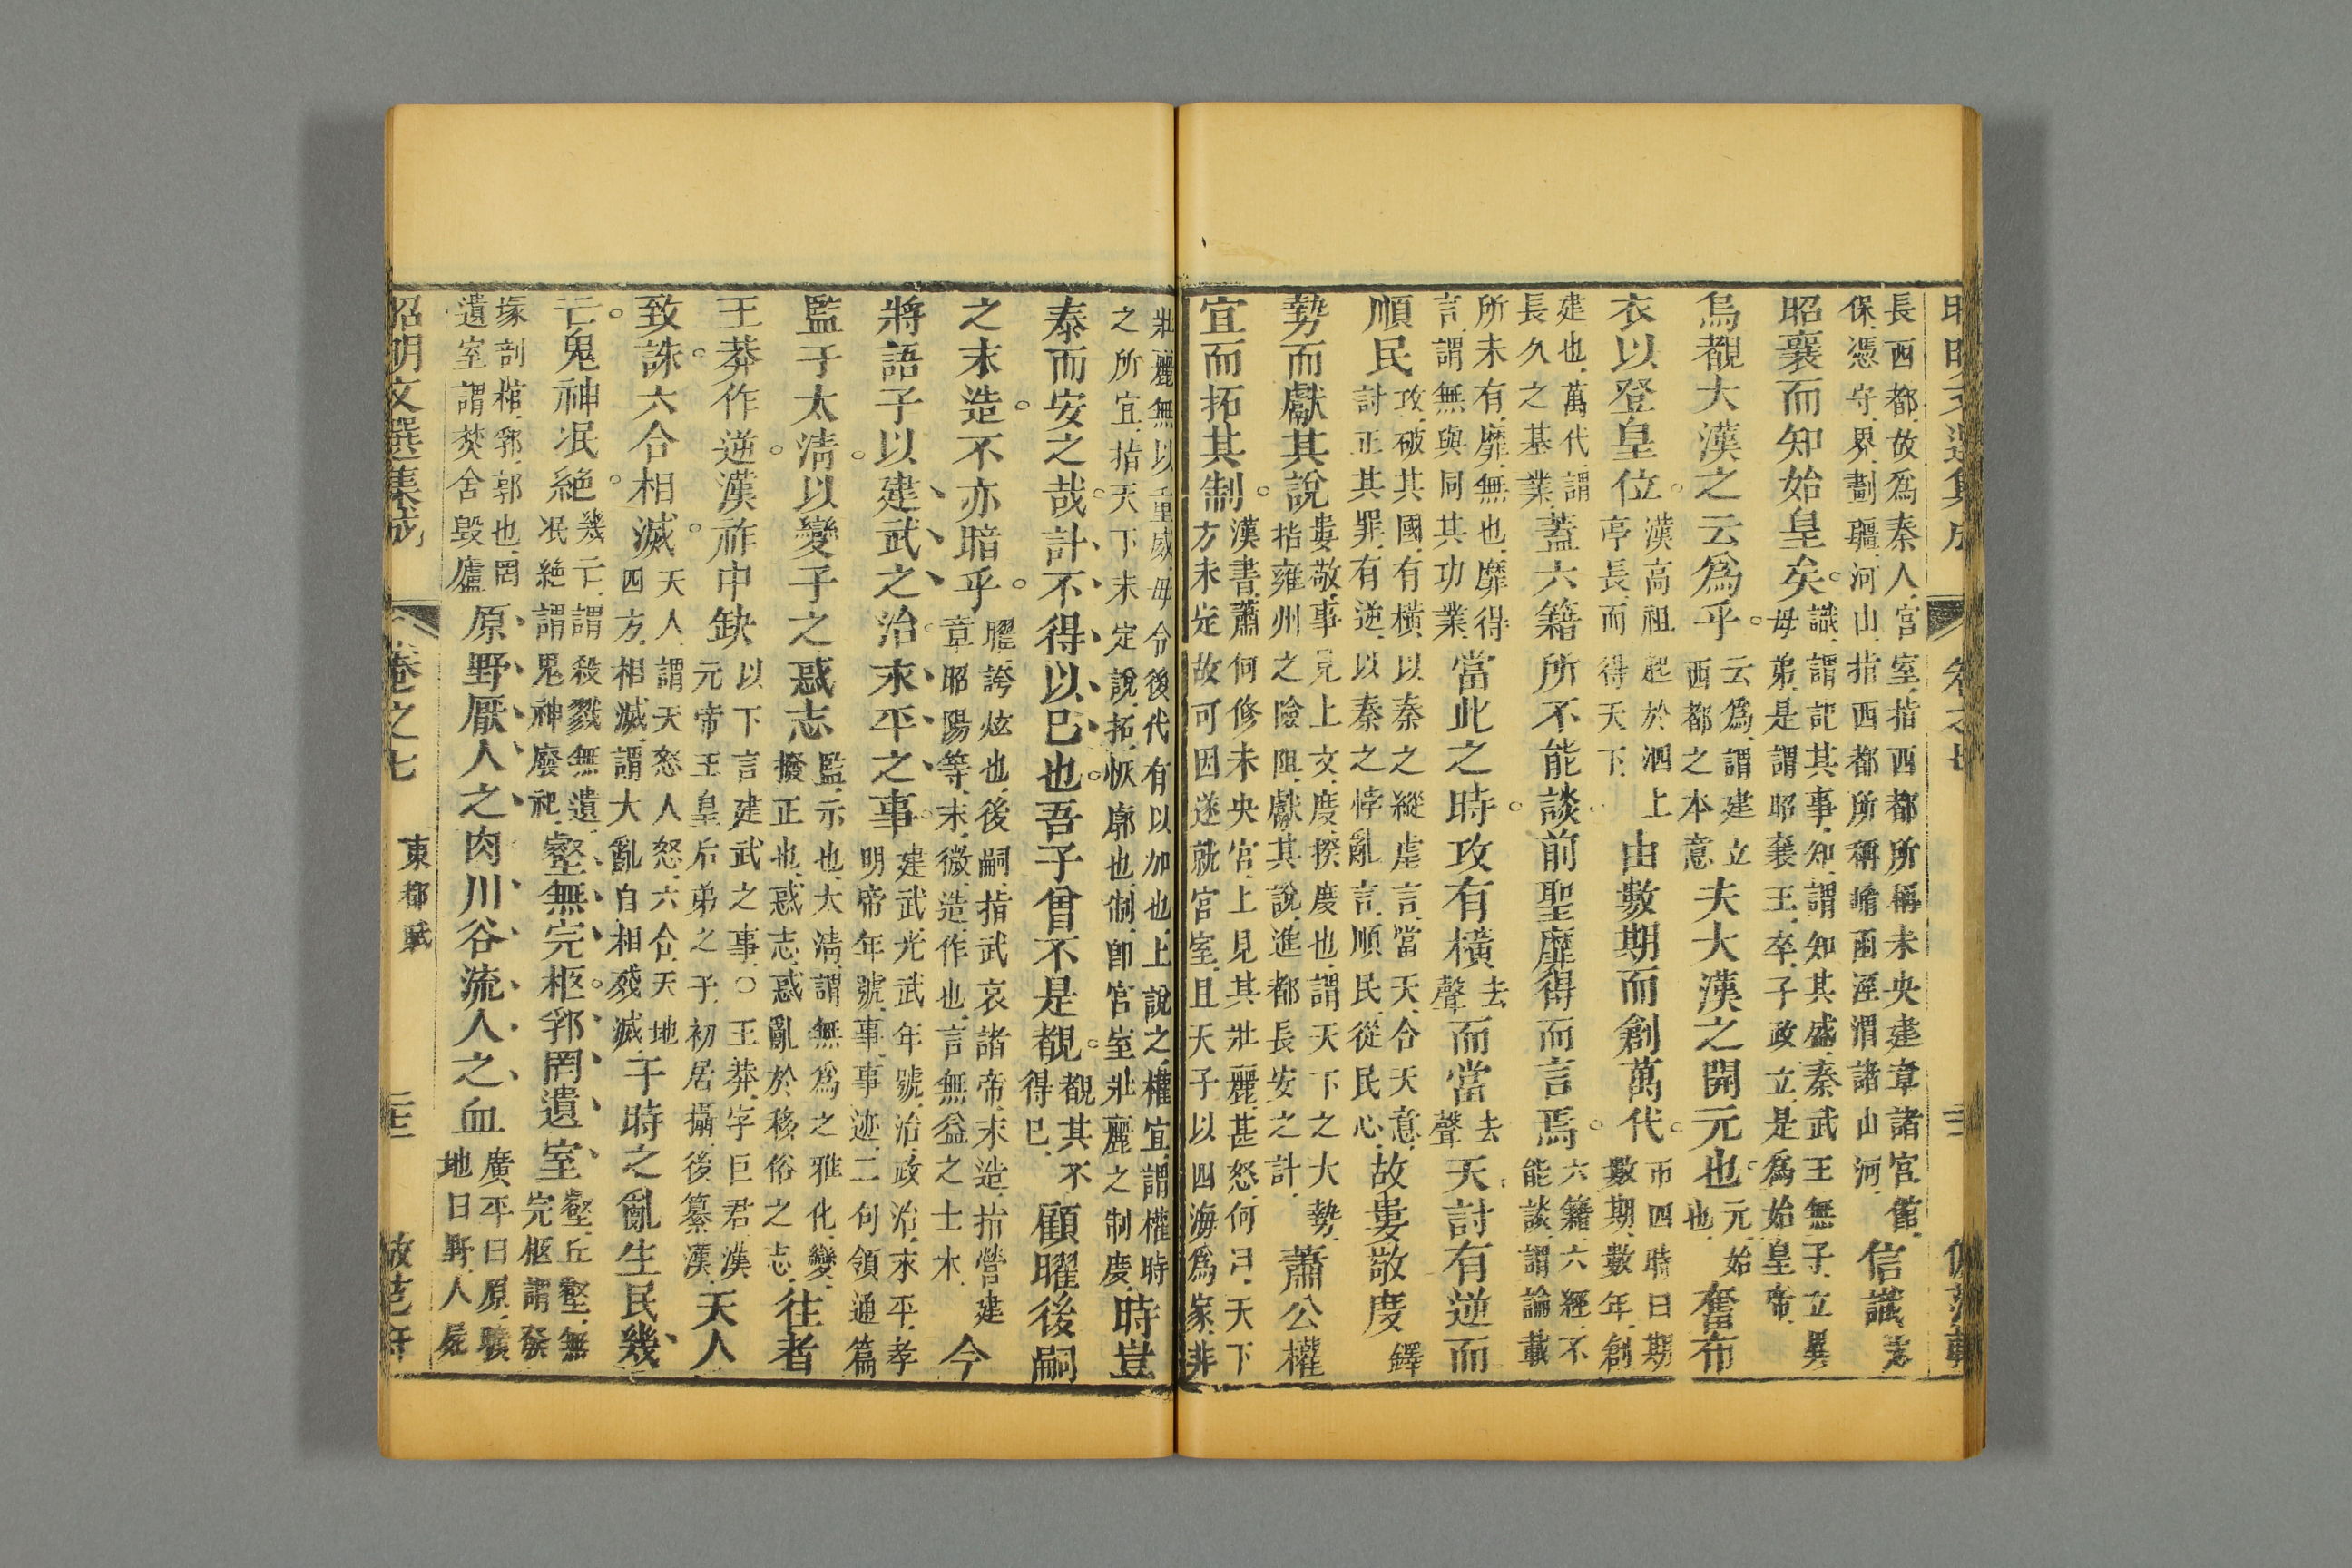 長西都,故爲秦人,宮室,指西都所稱未央建章諸宮館,保,憑守,界,劃疆,河山,指西都所稱崤函涇渭諸山河,信識志
昭襄而知始皇矣。識,謂記其事,知,謂知其盛,秦武王無子,立異母弟,是謂昭襄王,卒,子政立,是爲始皇帝,
烏覩大漢之云爲乎。云爲,謂建立西都之本意夫大漢之開元也。元,始也,奮布
衣以登皇位。漢高祖起於泗上亭長,而得天下,由數期而創萬代。帀四時曰期數期,數年,創
建也,萬代,謂長久之基業,蓋六籍所不能談前聖靡得而言焉。六籍,六經,不能談,謂論載
所未有,靡,無也,靡得言,謂無與同其功業,當此之時。攻有橫去聲而當去聲天討有逆而
順民攻,破其國,有橫,以秦之縱虐言,當天,合天意,討正其罪,有逆,以秦之悖亂言,順民,從民心,故婁敬度鐸
勢而獻其說婁敬,事見上文,度,揆度也,謂天下之大勢,指雍州之險阻,獻其說,進都長安之計,蕭公權
宜而拓其制。漢書,蕭何修未央宮,上見其壯麗,甚怒,何曰,天下方未定,故可因遂就宮室,且天子以四海爲家,非
壯麗無以重威,毋令後代有以加也,上說之,權宜,謂權時之所宜,指天下未定說,拓,恢廓也,制,卽宮室壯麗之制度,時豈
泰而安之哉。計不得以已也。吾子曾不是覩。覩其不得已,顧曜後嗣
之末造。不亦暗乎。曜,誇炫也,後嗣,指武哀諸帝,末造,指營建章昭陽等,末,微,造,作也,言無益之土木,今
將語子以建武之治。永平之事。建武,光武年號,治,政治,永平,孝明帝年號,事,事迹,二句領通篇
監于太清。以變子之惑志監,示也,太清,謂無爲之雅化,變,撥正也,惑志,惑亂於移俗之志,往者
王莽作逆。漢祚中缺以下言建武之事,○王莽,字巨君,漢元帝王皇后弟之子,初居攝,後纂漢,天人
致誅。六合相滅。天人,謂天怒人怒,六合,天地四方,相滅,謂大亂自相殘滅,于時之亂生民幾
亡。鬼神泯絕。幾亡,謂殺戮無遺,泯絕,謂鬼神廢祀,壑無完柩。郛罔遺室壑,丘壑,無完柩,謂發
塚剖棺,郛,郭也,罔遺室,謂焚舍毀廬原野厭人之肉川谷流人之血廣平曰原,曠地曰野,人屍
昭明文選集成 卷之七 東都賦